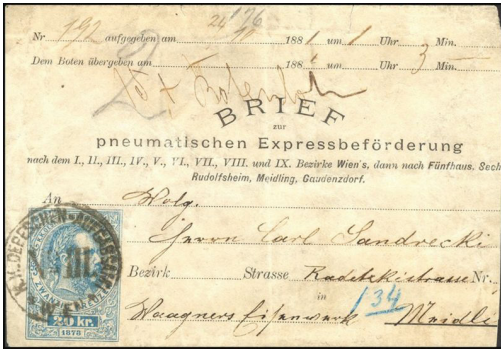 26/10
176
Nr 192 aufgegeben am 1881 um 1 Uhr 3 Min.
Dem Boten übergeben am 188 um Uhr 3 Min.
BRIEF
zur
pneumatischen Expressbeförderung
nach dem I., II., III., IV., V., VI., VII., VIII. und IX. Bezirke Wien's, dann nach Fünfhaus, Sech
Rudolfsheim, Meidling, Gaudenzdorf.
An Wolg.
Herrn Carl Sandrecki
Bezirk Strasse Radetzkistrasse Nr.
in
134
Waagners Eisenwerk Meidli
VIII.
20 kr.
1873